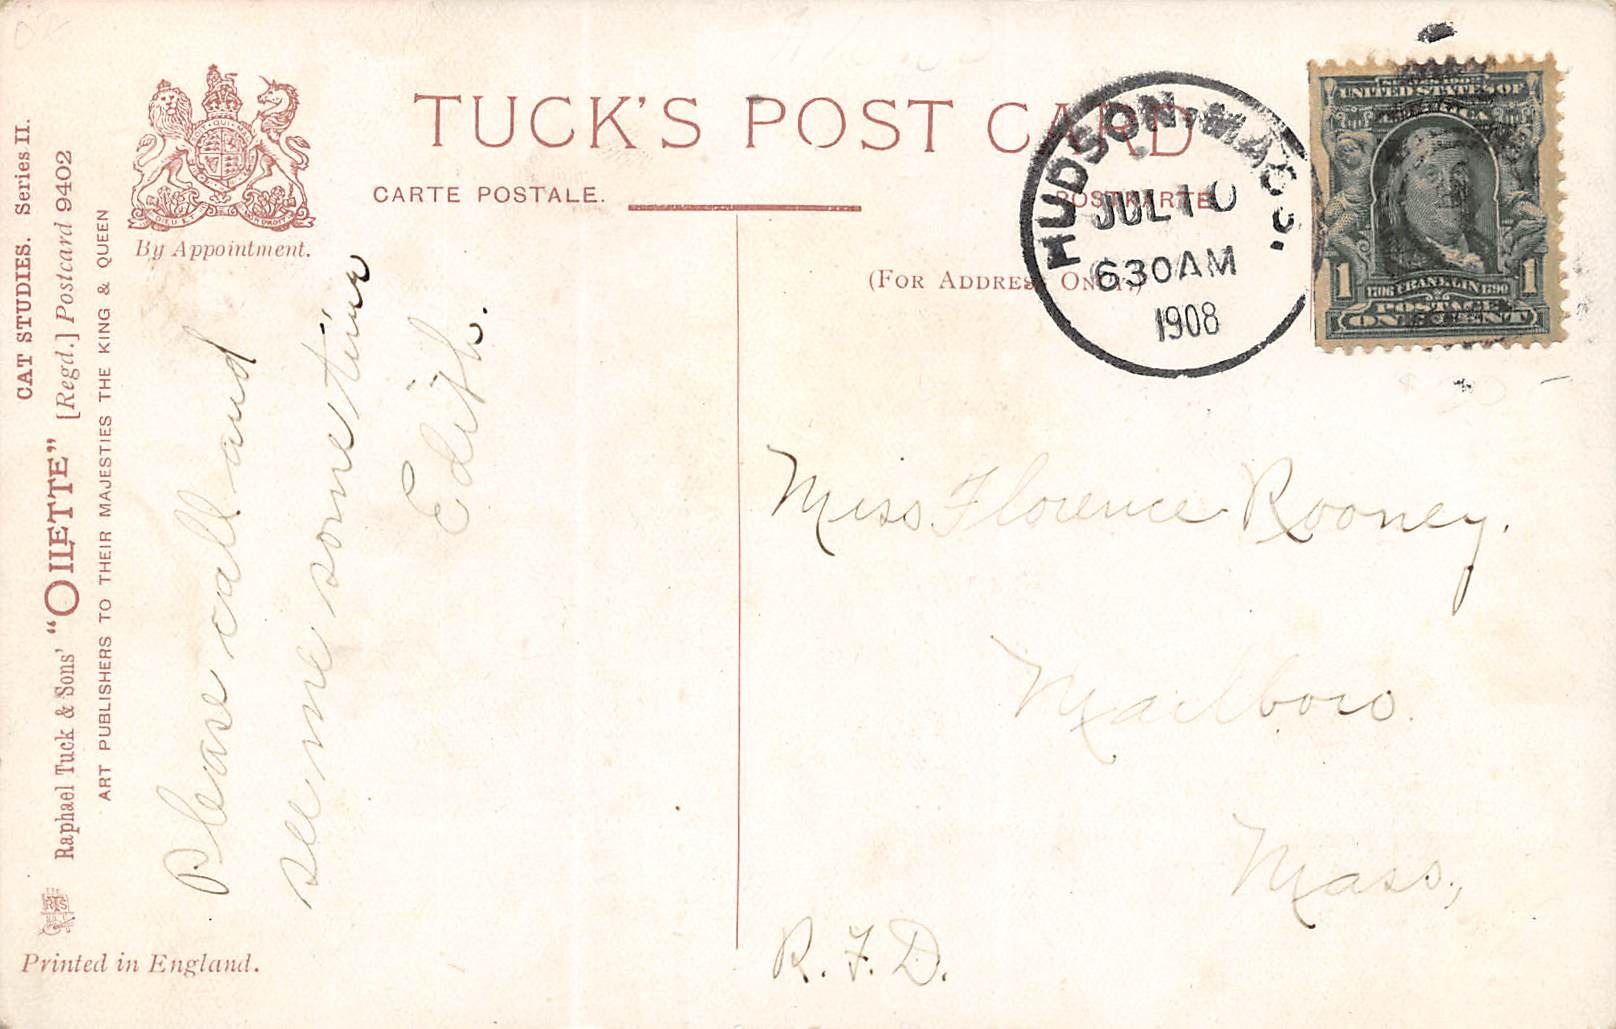 CAT STUDIES. Series II.
Raphael Tuck & Sons' "OILETTE" [Regd.] Postcard 9402
ART PUBLISHERS TO THEIR MAJESTIES THE KING & QUEEN
Printed in England.
By Appointment.
TUCK'S POST CARD
CARTE POSTALE.
POSTKARTE
(FOR ADDRESS ONLY.)
HUDSON, MASS.
JUL 10
630AM
1908
UNITED STATES OF
1 1706 FRANKLIN 1790 1
POSTAGE
ONE CENT
Please call and
see me sometime
Edith.
Miss Florence Rooney.
Marlboro.
Mass.,
R.F.D.